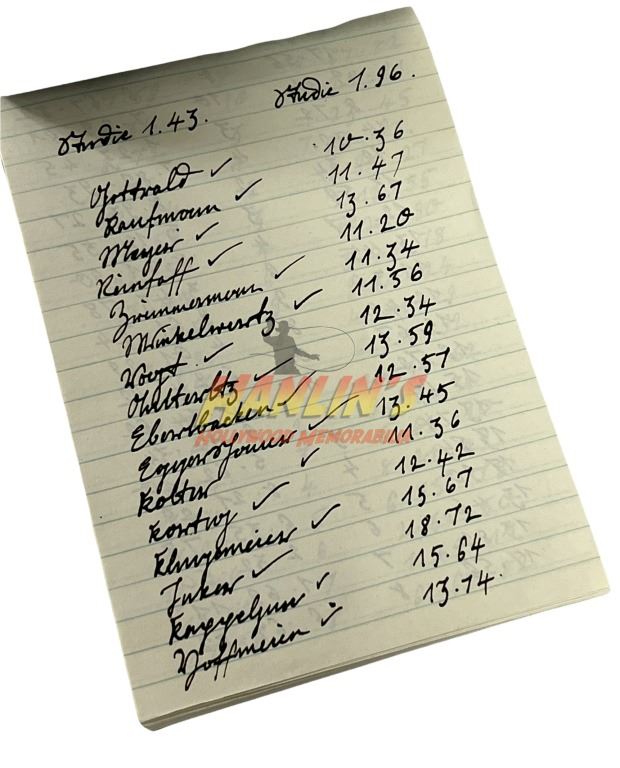 Studie 1.43. Studie 1.96.
Gottwald ✓ 10.36
Kaufmann ✓ 11.47
Meyer ✓ 13.67
✓ 11.20
Zimmermann ✓ 11.34
Winkelwertz ✓ 11.56
Vogt ✓ 12.34
✓ 13.59
Eberlbacken ✓ 12.57
✓ 13.45
Kolter ✓ 11.36
✓ 12.42
Klugemeier ✓ 15.67
Junker ✓ 18.72
✓ 15.64
Hoffmeier ✓ 13.74.
HANLIN'S
HOLLYWOOD MEMORABILIA